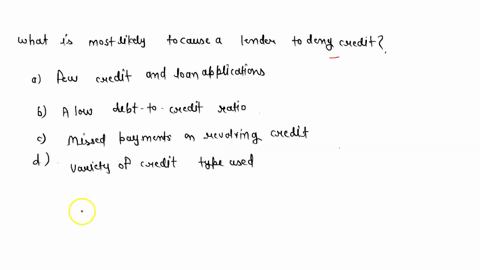 what is most likely to cause a lender to deny credit?
a) Few credit and loan applications
b) A low debt-to-credit ratio
c) Missed payments on revolving credit
d) variety of credit type used